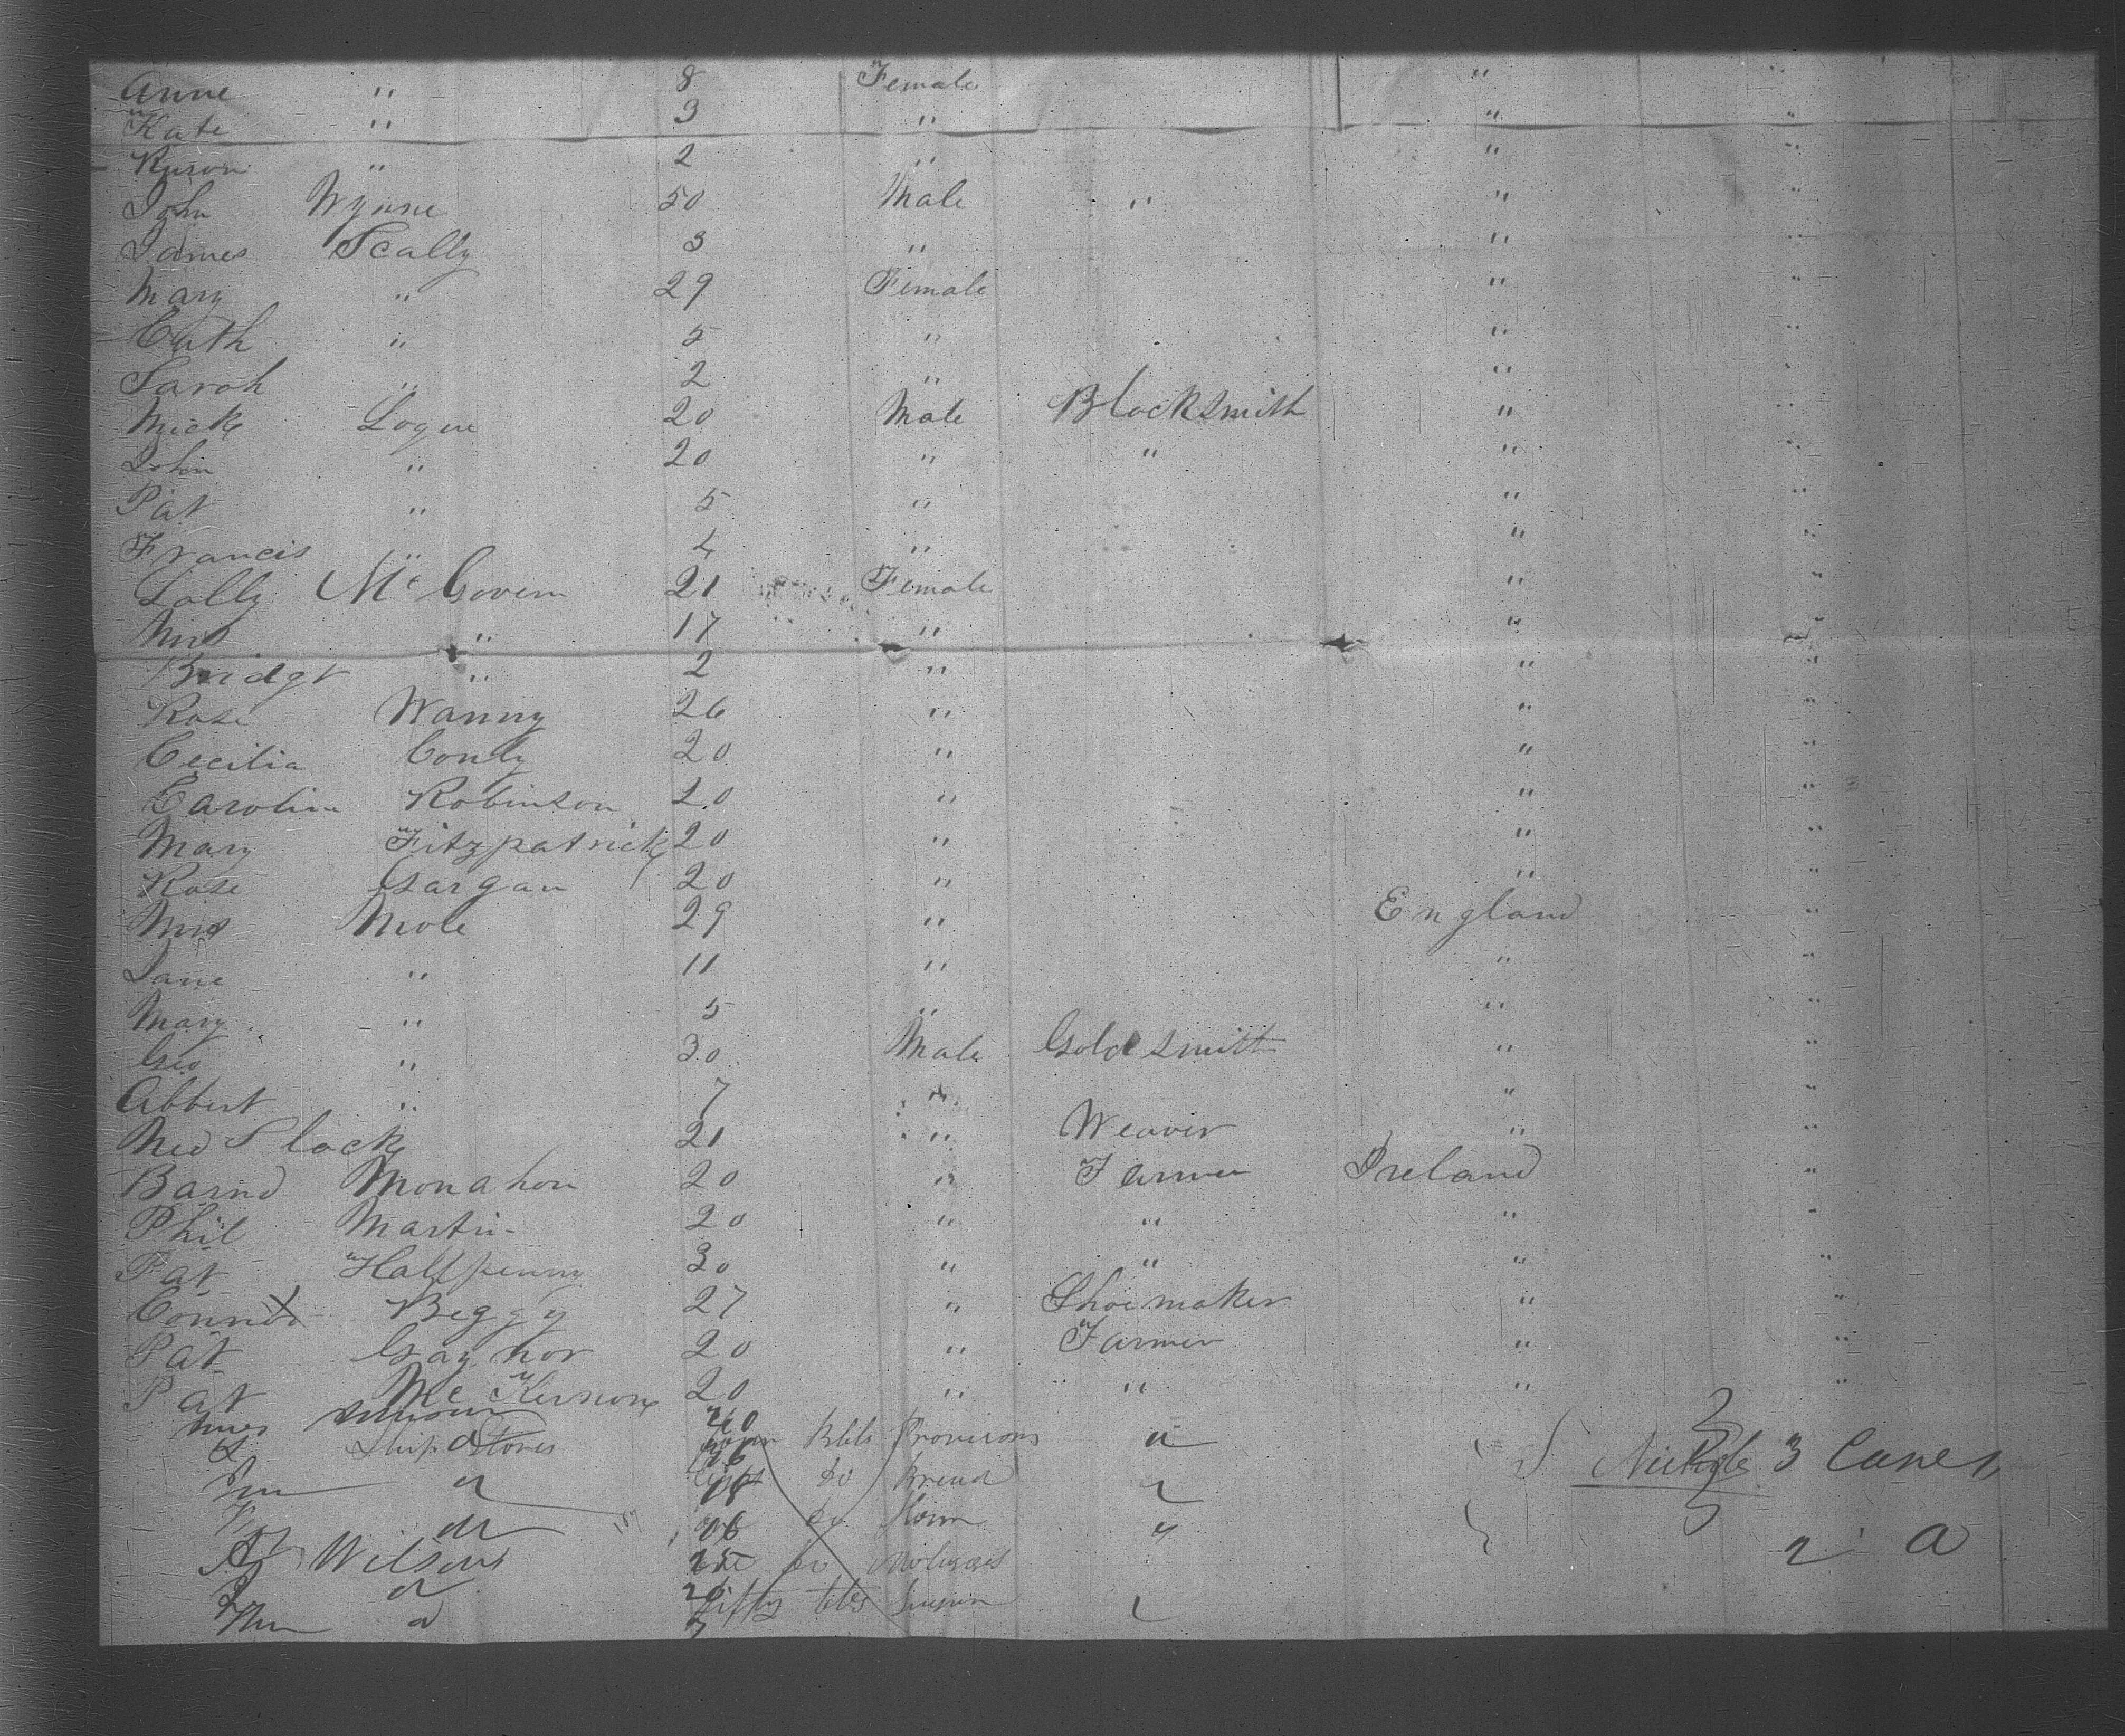 Anne " 8 Female " "
Kate " 3 " " "
" 2 " " "
John Wynne 50 Male " " "
James Scally 3 " " "
Mary " 29 Female " "
Cath " 5 " " "
Sarah " 2 " " "
Mick Logue 20 Male Blacksmith " "
John " 20 " " " "
Pat " 5 " " "
Francis " 4 " " "
Mc Govern 21 Female " "
Mrs " 17 " " "
Bridgt " 2 " " "
Rose Wanny 26 " " "
Cecilia Conly 20 " " "
Caroline Robinson 20 " " "
Mary Fitzpatrick 20 " " "
Rose Gargan 20 " " "
Mrs Mole 29 " England "
Jane " 11 " " "
Mary " 5 " " "
Geo " 30 Male Goldsmith " "
Albert " 7 " " "
Ned Slock 21 " Weaver " "
Barnd Monahon 20 " Farmer Ireland "
Phil Martin 20 " " " "
Pat Halfpenny 30 " " " "
Beggy 27 " Shoemaker " "
Pat Gaynor 20 " Farmer " "
Pat Mc Kernon 20 " " " "
Ship Stores Bbls Provisions
do Bread 3
do
Wilson do Molasses
Fifty